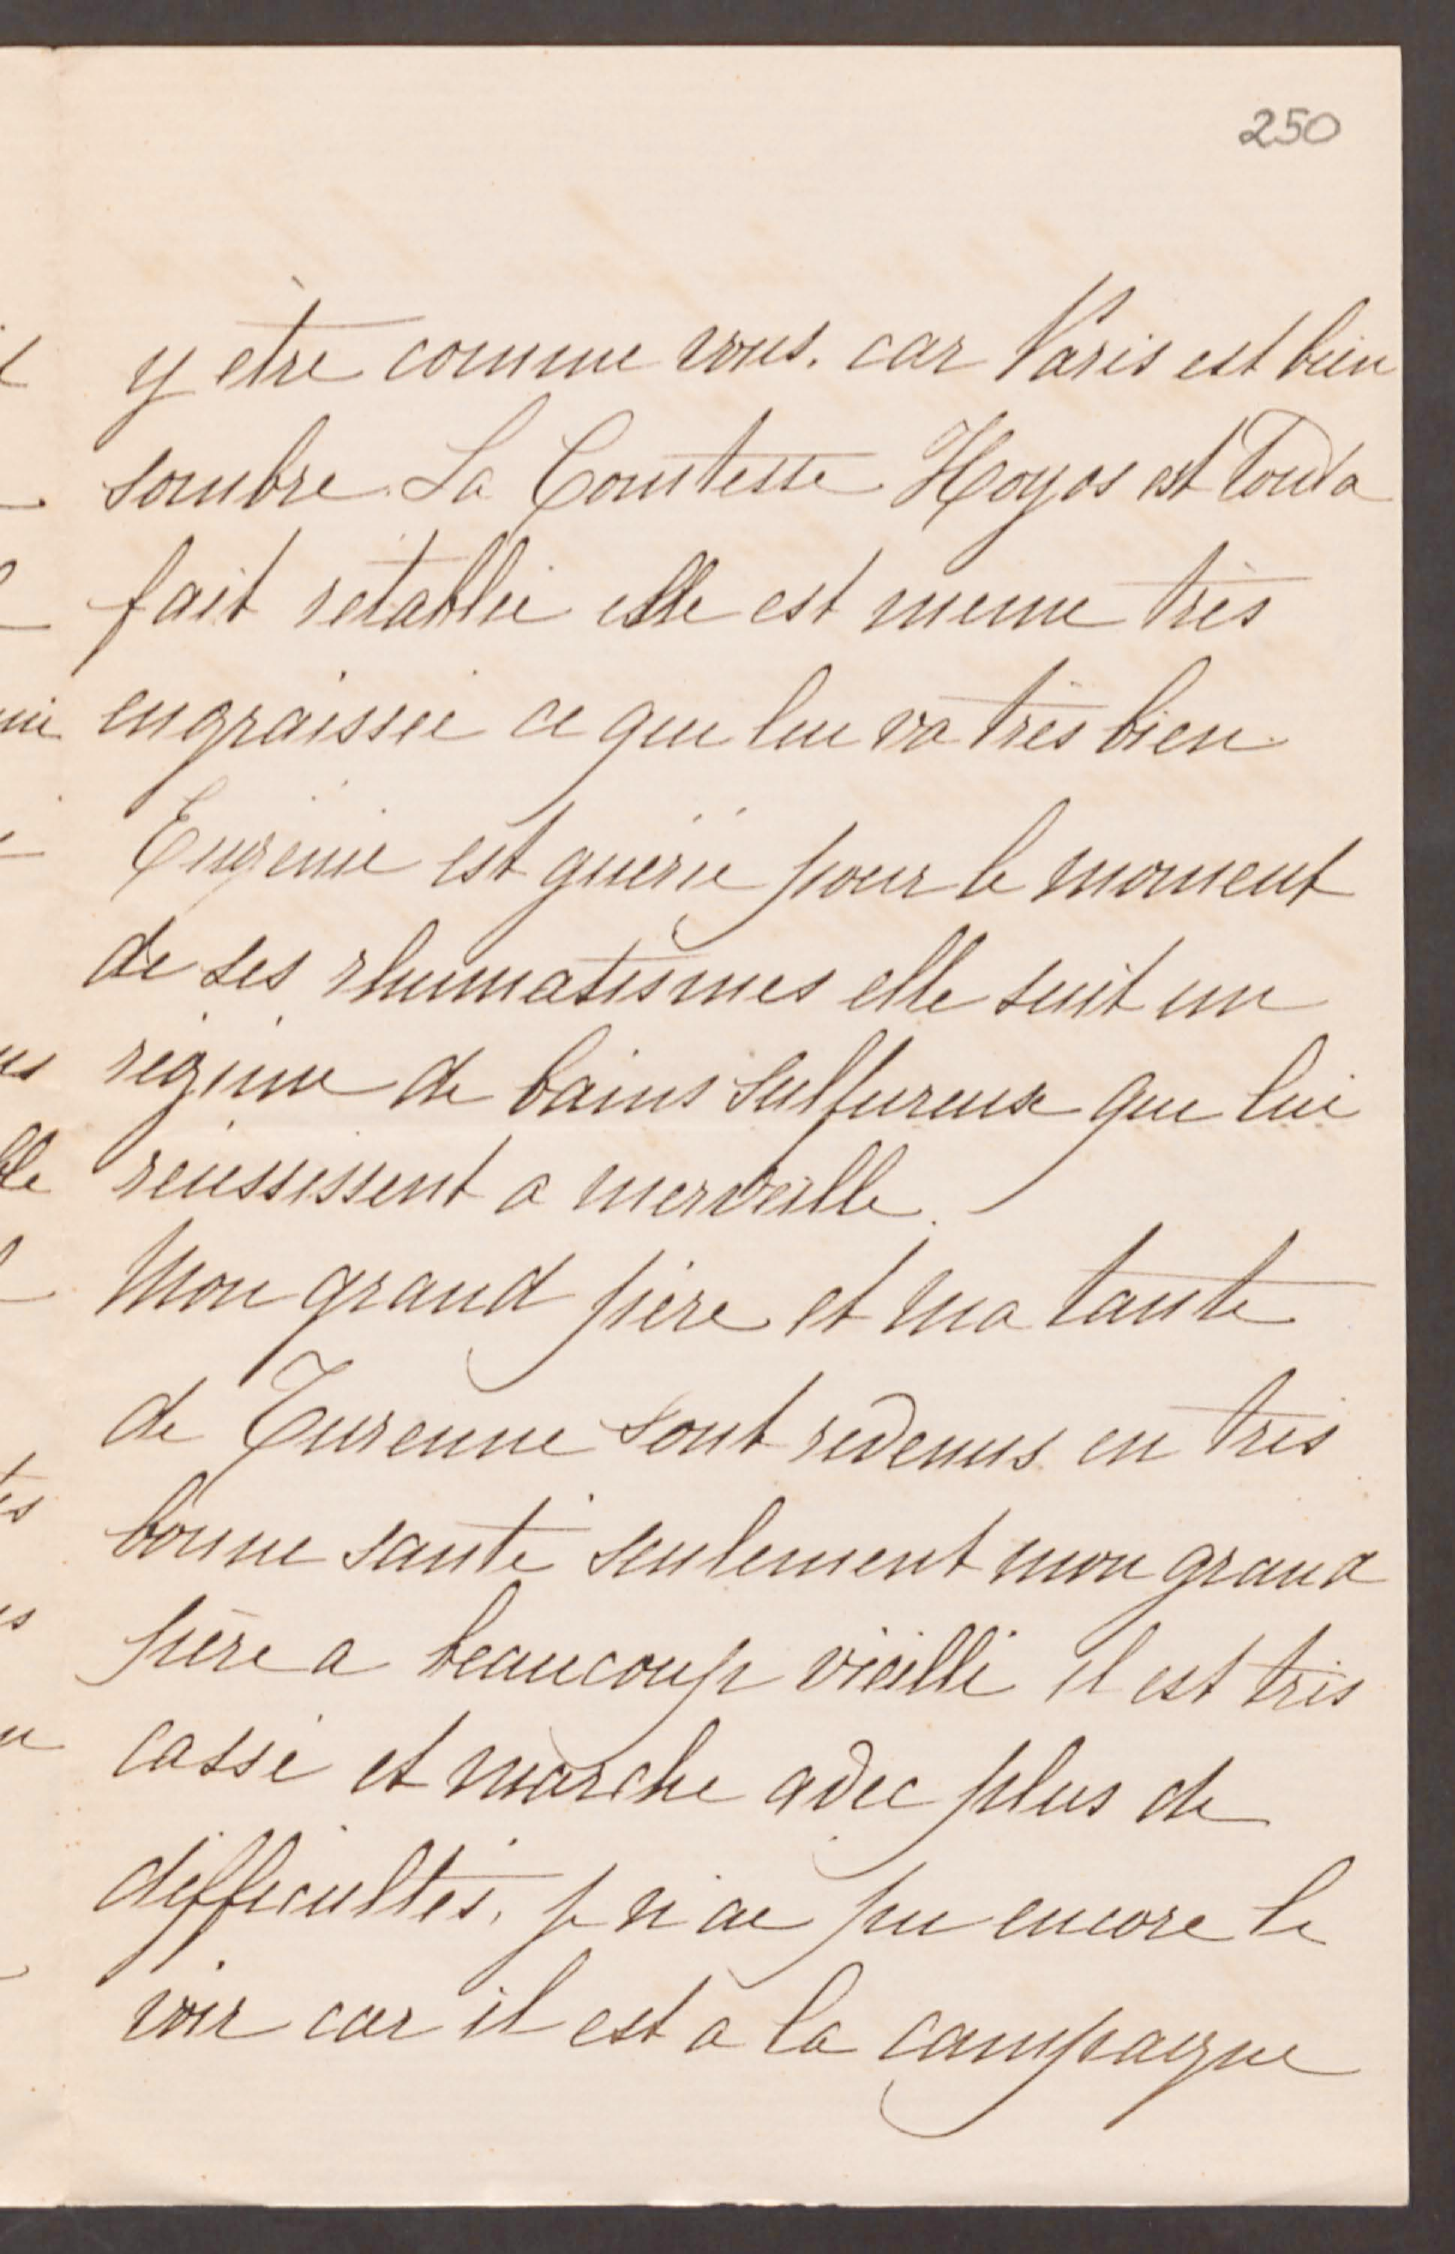 250
y etre comme vous. car Paris est bien
sombre. La Comtesse Hoyos est tout a
fait rétablie elle est meme très
engraissée ce qui lui va très bien.
Eugénie est guérie pour le moment
de ses rhumatismes elle suit un
régime de bains sulfureux qui lui
réussissent a merveille.
Mon grand père et ma tante
de Turenne sont revenus en très
bonne santé seulement mon grand
père a beaucoup vieilli il est très
cassé et marche avec plus de
difficultés. je n'ai pu encore le
voir car il est à la campagne